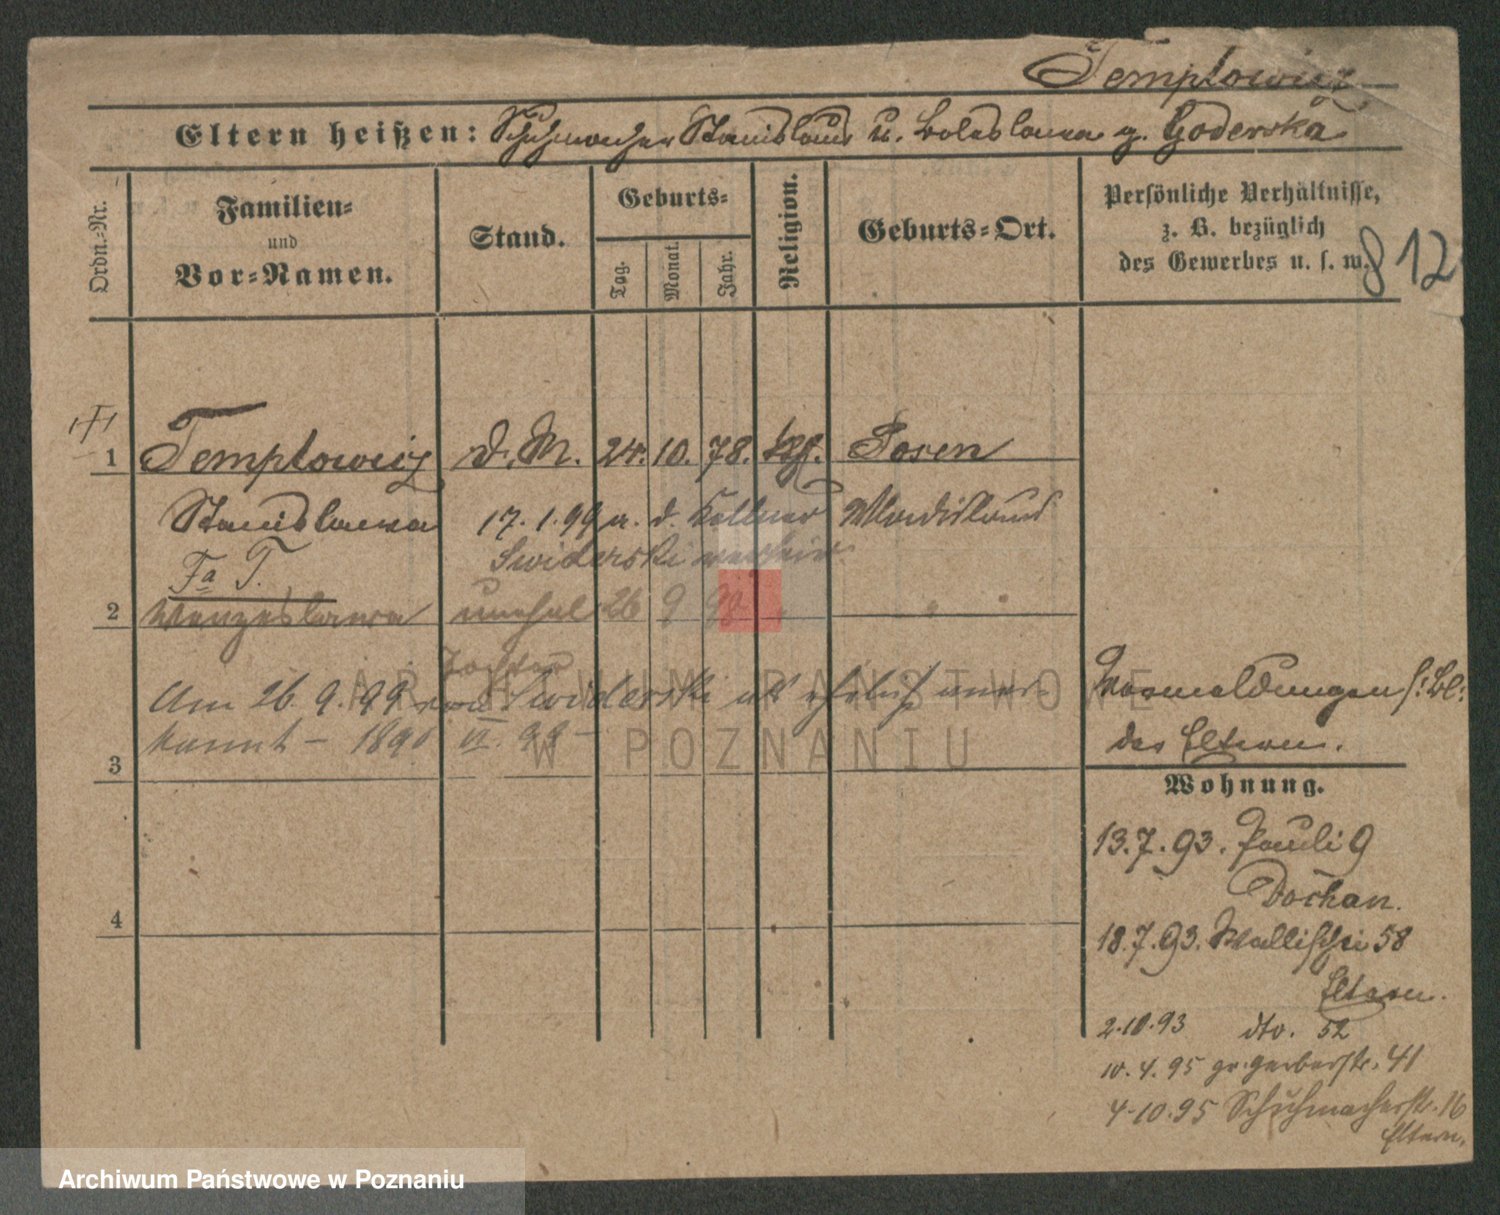 Templowicz
Eltern heißen: Schuhmacher Stanislaus u. Boleslawa g. Goderska
Ordn.-Nr.
Familien-
und
Vor-Namen.
Stand.
Geburts-
Tag.
Monat.
Jahr.
Religion.
Geburts-Ort.
Persönliche Verhältnisse,
z. B. bezüglich
des Gewerbes u. s. w.
812
1 Templowicz d. M. 24. 10. 78. kth. Posen
Stanislawa 17. 1. 99 a. d. Kellner Wladislaus
Swiderski verheir.
Fa T.
2 Wenzeslawa unehel 26 9 98 " " "
Tochter
Am 26. 9. 99 von Swiderski als ehelich aner-
kannt – 1890 VI. 99 –
3
4
Vormeldungen s. Bl.
der Eltern.
Wohnung.
13. 7. 93. Pauli 9
Dochan.
18. 7. 93. Wallischei 58
Eltern.
2.10.93 dto. 52
10. 4. 95 gr. Gerberstr. 41
4-10.95 Schuhmacherstr. 16
Eltern.
ARCHIWUM PAŃSTWOWE
W POZNANIU
Archiwum Państwowe w Poznaniu